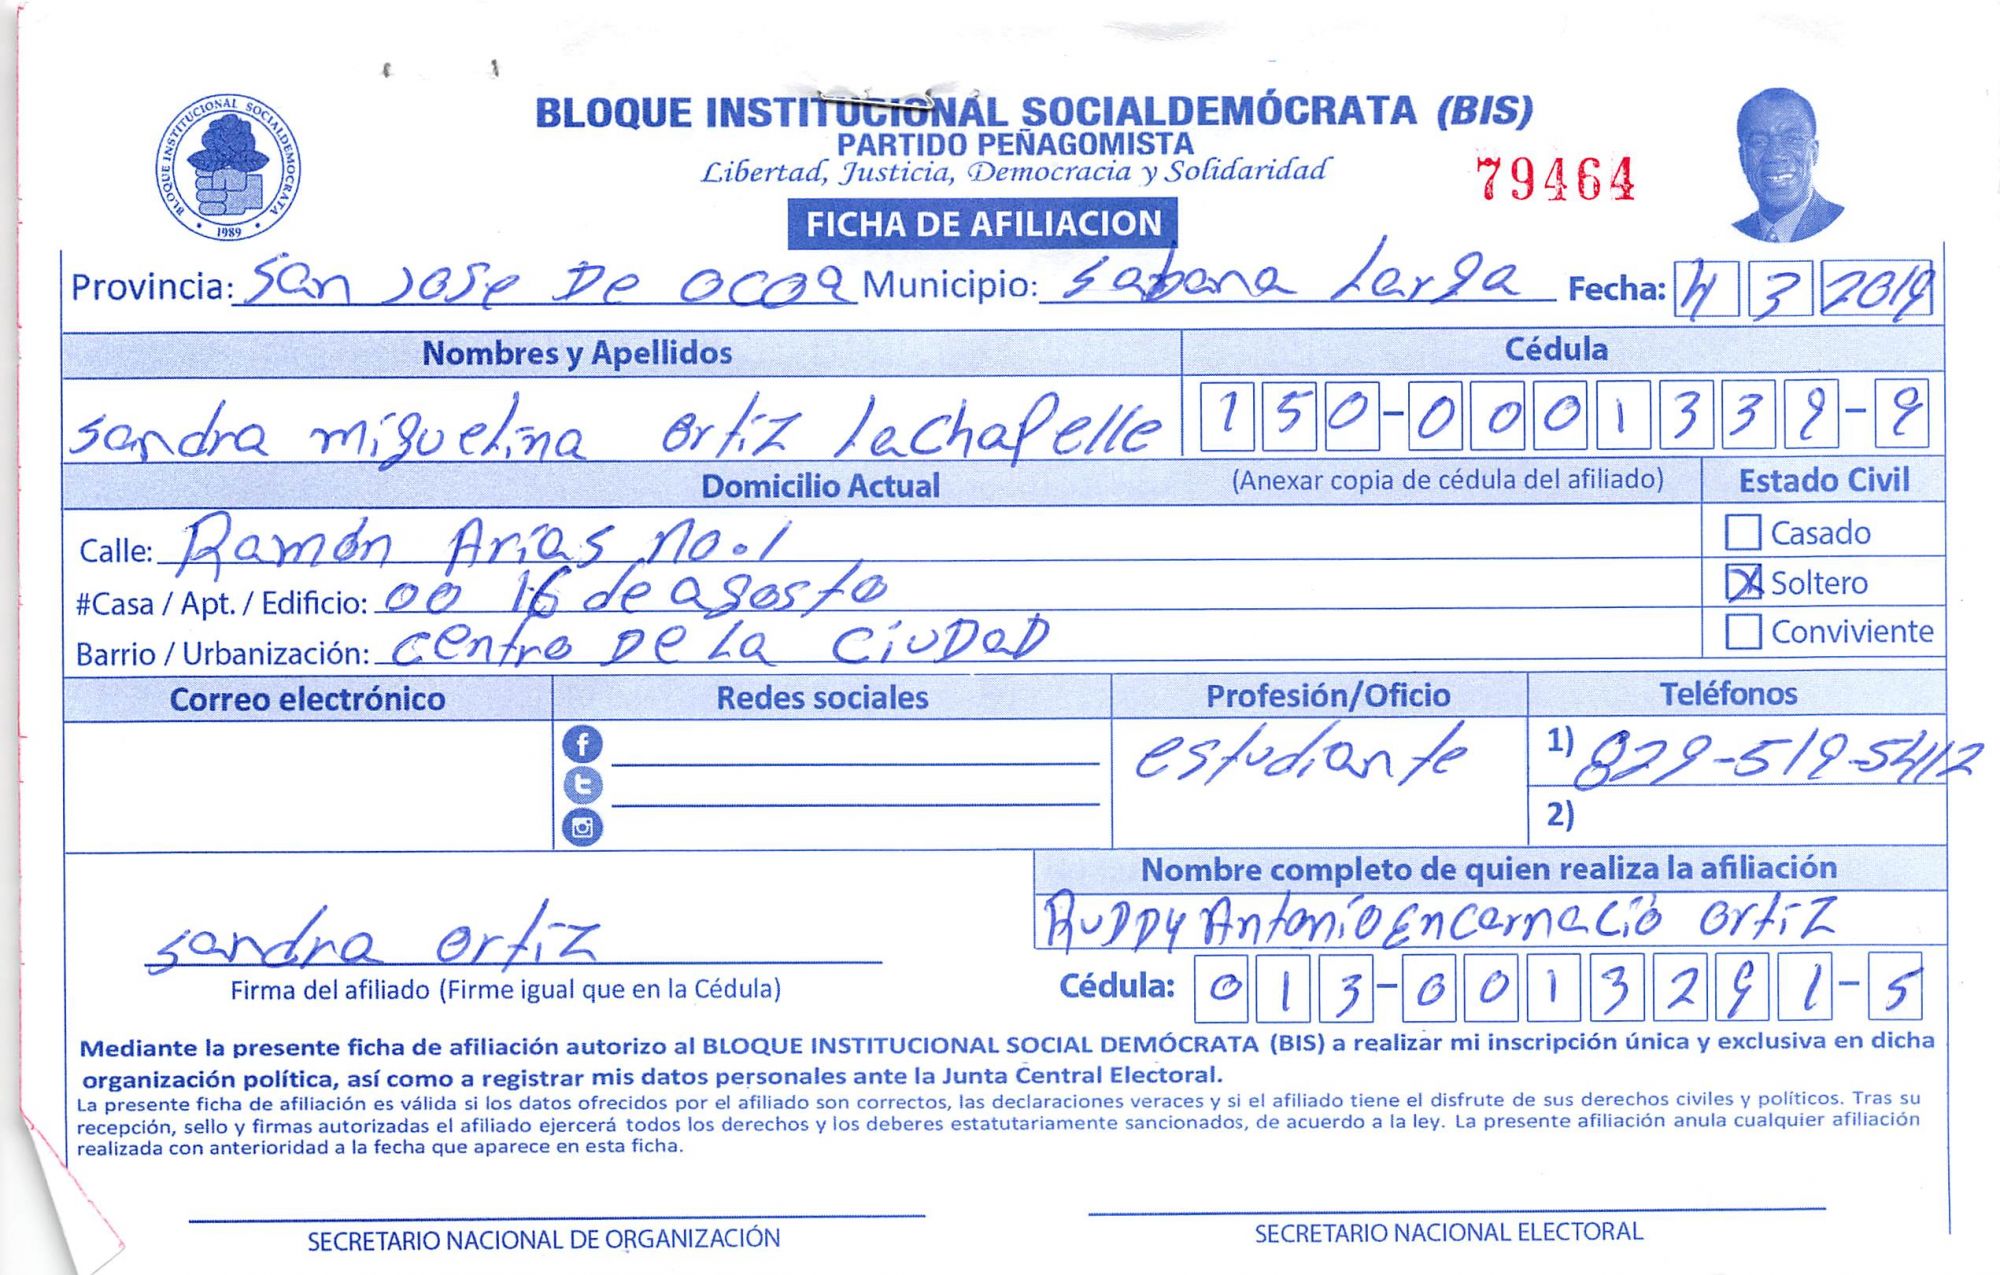 BLOQUE INSTITUCIONAL SOCIALDEMÓCRATA (BIS)
PARTIDO PEÑAGOMISTA
Libertad, Justicia, Democracia y Solidaridad
79464
BLOQUE INSTITUCIONAL SOCIALDEMOCRATA
1989
FICHA DE AFILIACION
Provincia: San Jose De Ocoa Municipio: Sabana Larga Fecha: 4 3 2019
Nombres y Apellidos Cédula
Sandra Miguelina Ortiz Lachapelle 150-0001339-9
Domicilio Actual (Anexar copia de cédula del afiliado) Estado Civil
Calle: Ramón Arias No.1 Casado
#Casa / Apt. / Edificio: 00 16 de agosto X Soltero
Barrio / Urbanización: Centro De La CiuDaD Conviviente
Correo electrónico Redes sociales Profesión/Oficio Teléfonos
estudiante 1) 829-519-5412
2)
Nombre completo de quien realiza la afiliación
RuDDy Antonio Encarnació Ortiz
Sandra Ortiz
Firma del afiliado (Firme igual que en la Cédula) Cédula: 013-0013291-5
Mediante la presente ficha de afiliación autorizo al BLOQUE INSTITUCIONAL SOCIAL DEMÓCRATA (BIS) a realizar mi inscripción única y exclusiva en dicha
organización política, así como a registrar mis datos personales ante la Junta Central Electoral.
La presente ficha de afiliación es válida si los datos ofrecidos por el afiliado son correctos, las declaraciones veraces y si el afiliado tiene el disfrute de sus derechos civiles y políticos. Tras su
recepción, sello y firmas autorizadas el afiliado ejercerá todos los derechos y los deberes estatutariamente sancionados, de acuerdo a la ley. La presente afiliación anula cualquier afiliación
realizada con anterioridad a la fecha que aparece en esta ficha.
SECRETARIO NACIONAL DE ORGANIZACIÓN SECRETARIO NACIONAL ELECTORAL